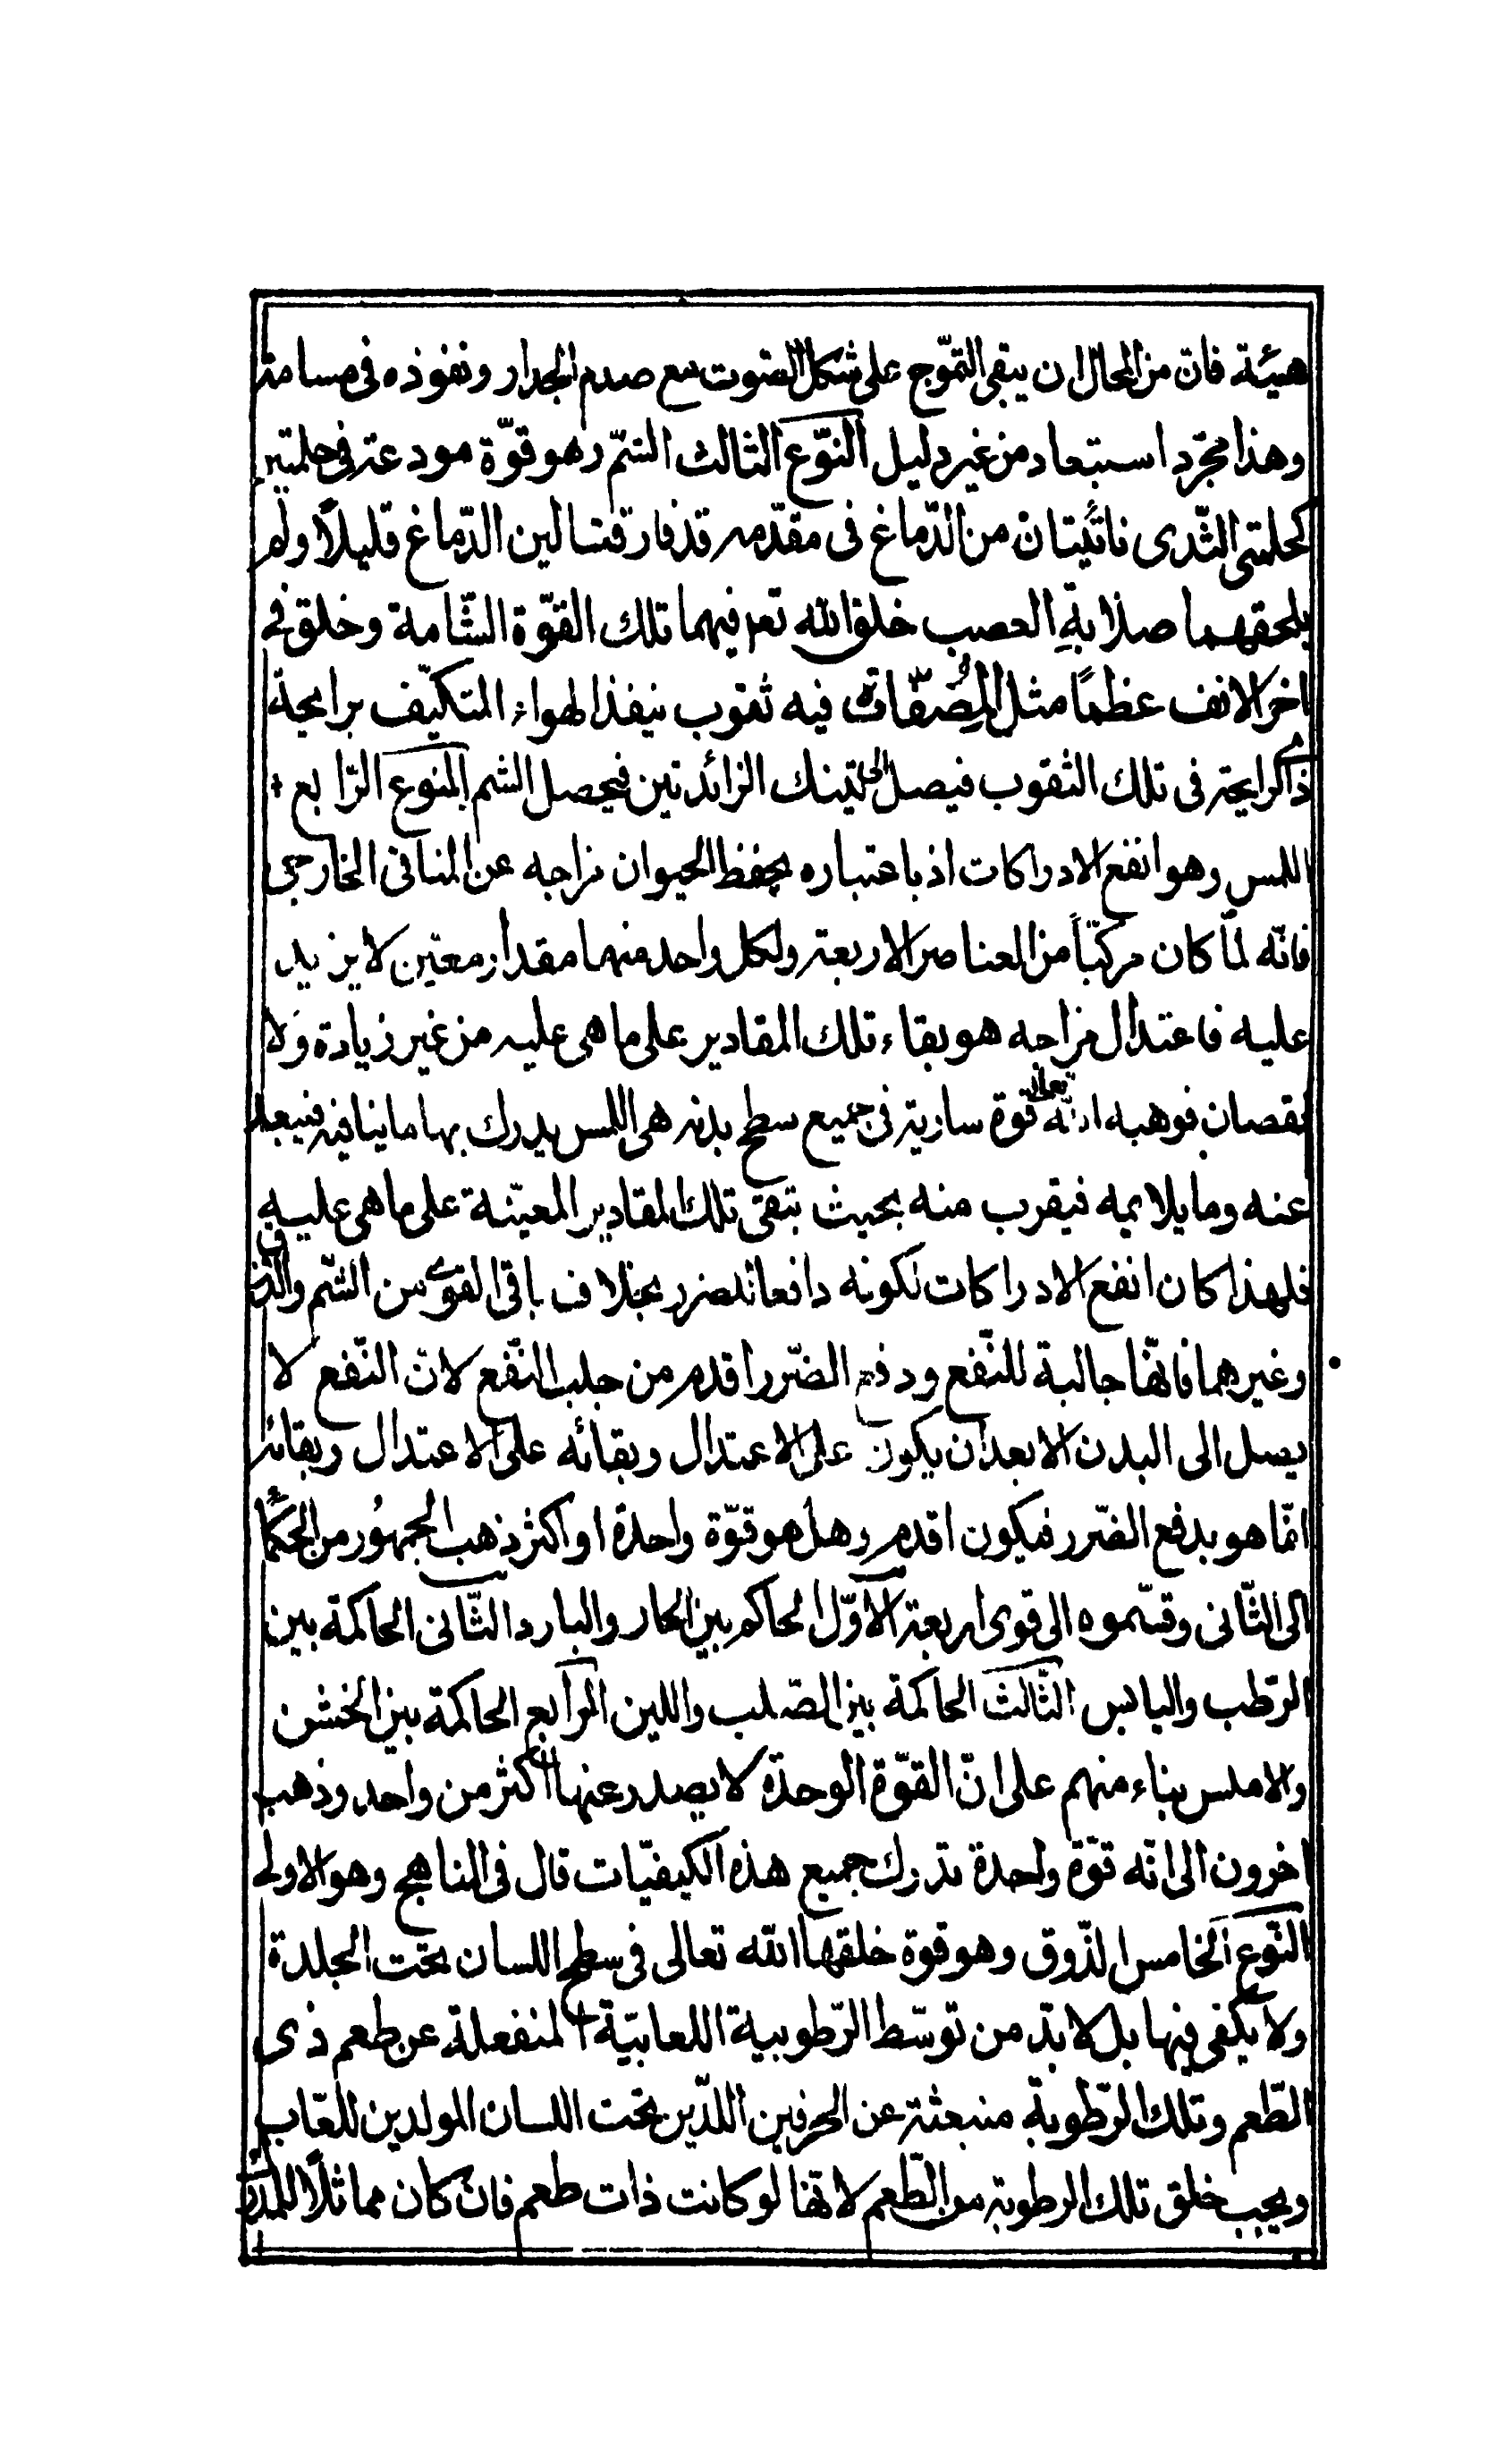 هيئة فان من المحال ان يبقى التموّج على شكل الصوت مع صدم الجدار ونفوذه فى مسامته
وهذا مجرّد استبعاد من غير دليل النّوع الثالث الشمّ وهو قوّة مودعة فى حلمتين
كحلمتى الثّدى ناتئيتان من الدّماغ فى مقدّمه قد فارقتا لين الدّماغ قليلاً ولم
يلحقهما صلابة العصب خلق الله تعم فيهما تلك القوّة الشّامة وخلق فى
اخر الانف عظمًا مثل المُصَفّات فيه ثقوب ينفذ الهواء المتكيّف برايحة
ذى الرايحة فى تلك الثقوب فيصل الى تينك الزائدتين فيحصل الشم النوع الرّابع
اللمس وهو انفع الادراكات اذ باعتباره يحفظ الحيوان مزاجه عن المنافى الخارجى
فانّه لمّا كان مركبّاً من العناصر الاربعة ولكل واحد منهما مقدار معيّن لا يزيد
عليه فاعتدال مزاجه هو بقاء تلك المقادير على ما هى عليه من غير زيادة ولا
نقصان فوهبه الله تعالى قوة سارية فى جميع سطح بدنه هى اللمس يدرك بها ما ينافيه فيبعد
عنه وما يلايمه فيقرب منه بحيث تبقى تلك المقادير المعيّنة على ما هى عليه
فلهذا كان انفع الادراكات لكونه دافعا للضرر بخلاف باقى القوى من الشّم والذوق
وغيرهما فانّها جالبة للنّفع ودفع الضّرر اقدم من جلب النّفع لانّ النّفع لا
يصل الى البدن الا بعد ان يكون على الاعتدال وبقائه على الاعتدال وبقائه
انمّا هو بدفع الضّرر فيكون اقدم وهل هو قوّة واحدة او اكثر ذهب الجمهُور من الحكمّا
الى الثّانى وقسّموه الى قوى اربعة الاوّل الحاكم بين الحار والبارد الثّانى الحاكمة بين
الرّطب واليابس الثّالث الحاكمة بين الصّلب واللين الرّابع الحاكمة بين الخشن
والاملس بناء منهم على انّ القوّة الوحدة لا يصدر عنها اكثر من واحد وذهب
اخرون الى انّه قوّة واحدة تدرك جميع هذه الكيفيّات قال فى المناهج وهو الاولى
النّوع الخامس الذّوق وهو قوة خلقها الله تعالى فى سطح اللسان تحت الجلدة
ولا يكفى فيها بل لا بدّ من توسّط الرّطوبية اللعابيّة المنفعلة عن طعم ذى
الطّعم وتلك الرّطوبة منبعثة عن الحرفين اللذّين تحت اللسان المولدين للعّاب
ويجب خلق تلك الرطوبة من الطّعم لانّها لو كانت ذات طعم فان كان مماثلاً